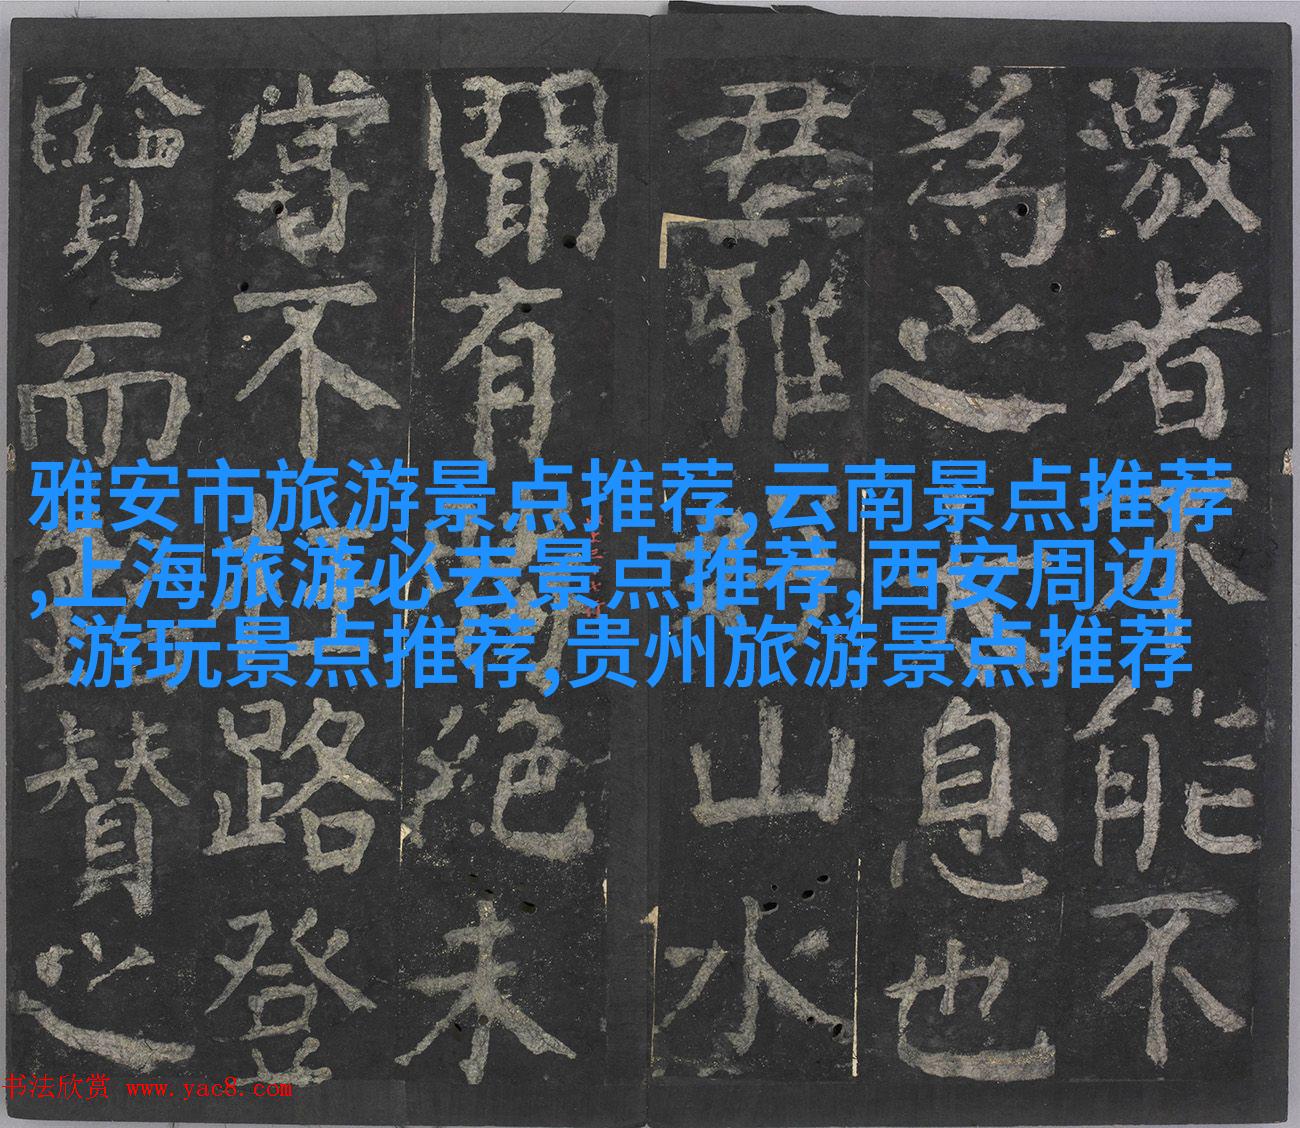 激者不能不
為之息也
君雅山水
聞有絕未
嘗不路登
覽而賛之
雅安市旅游景点推荐,云南景点推荐
,上海旅游必去景点推荐,西安周边
游玩景点推荐,贵州旅游景点推荐
书法欣赏 www.yac8.com